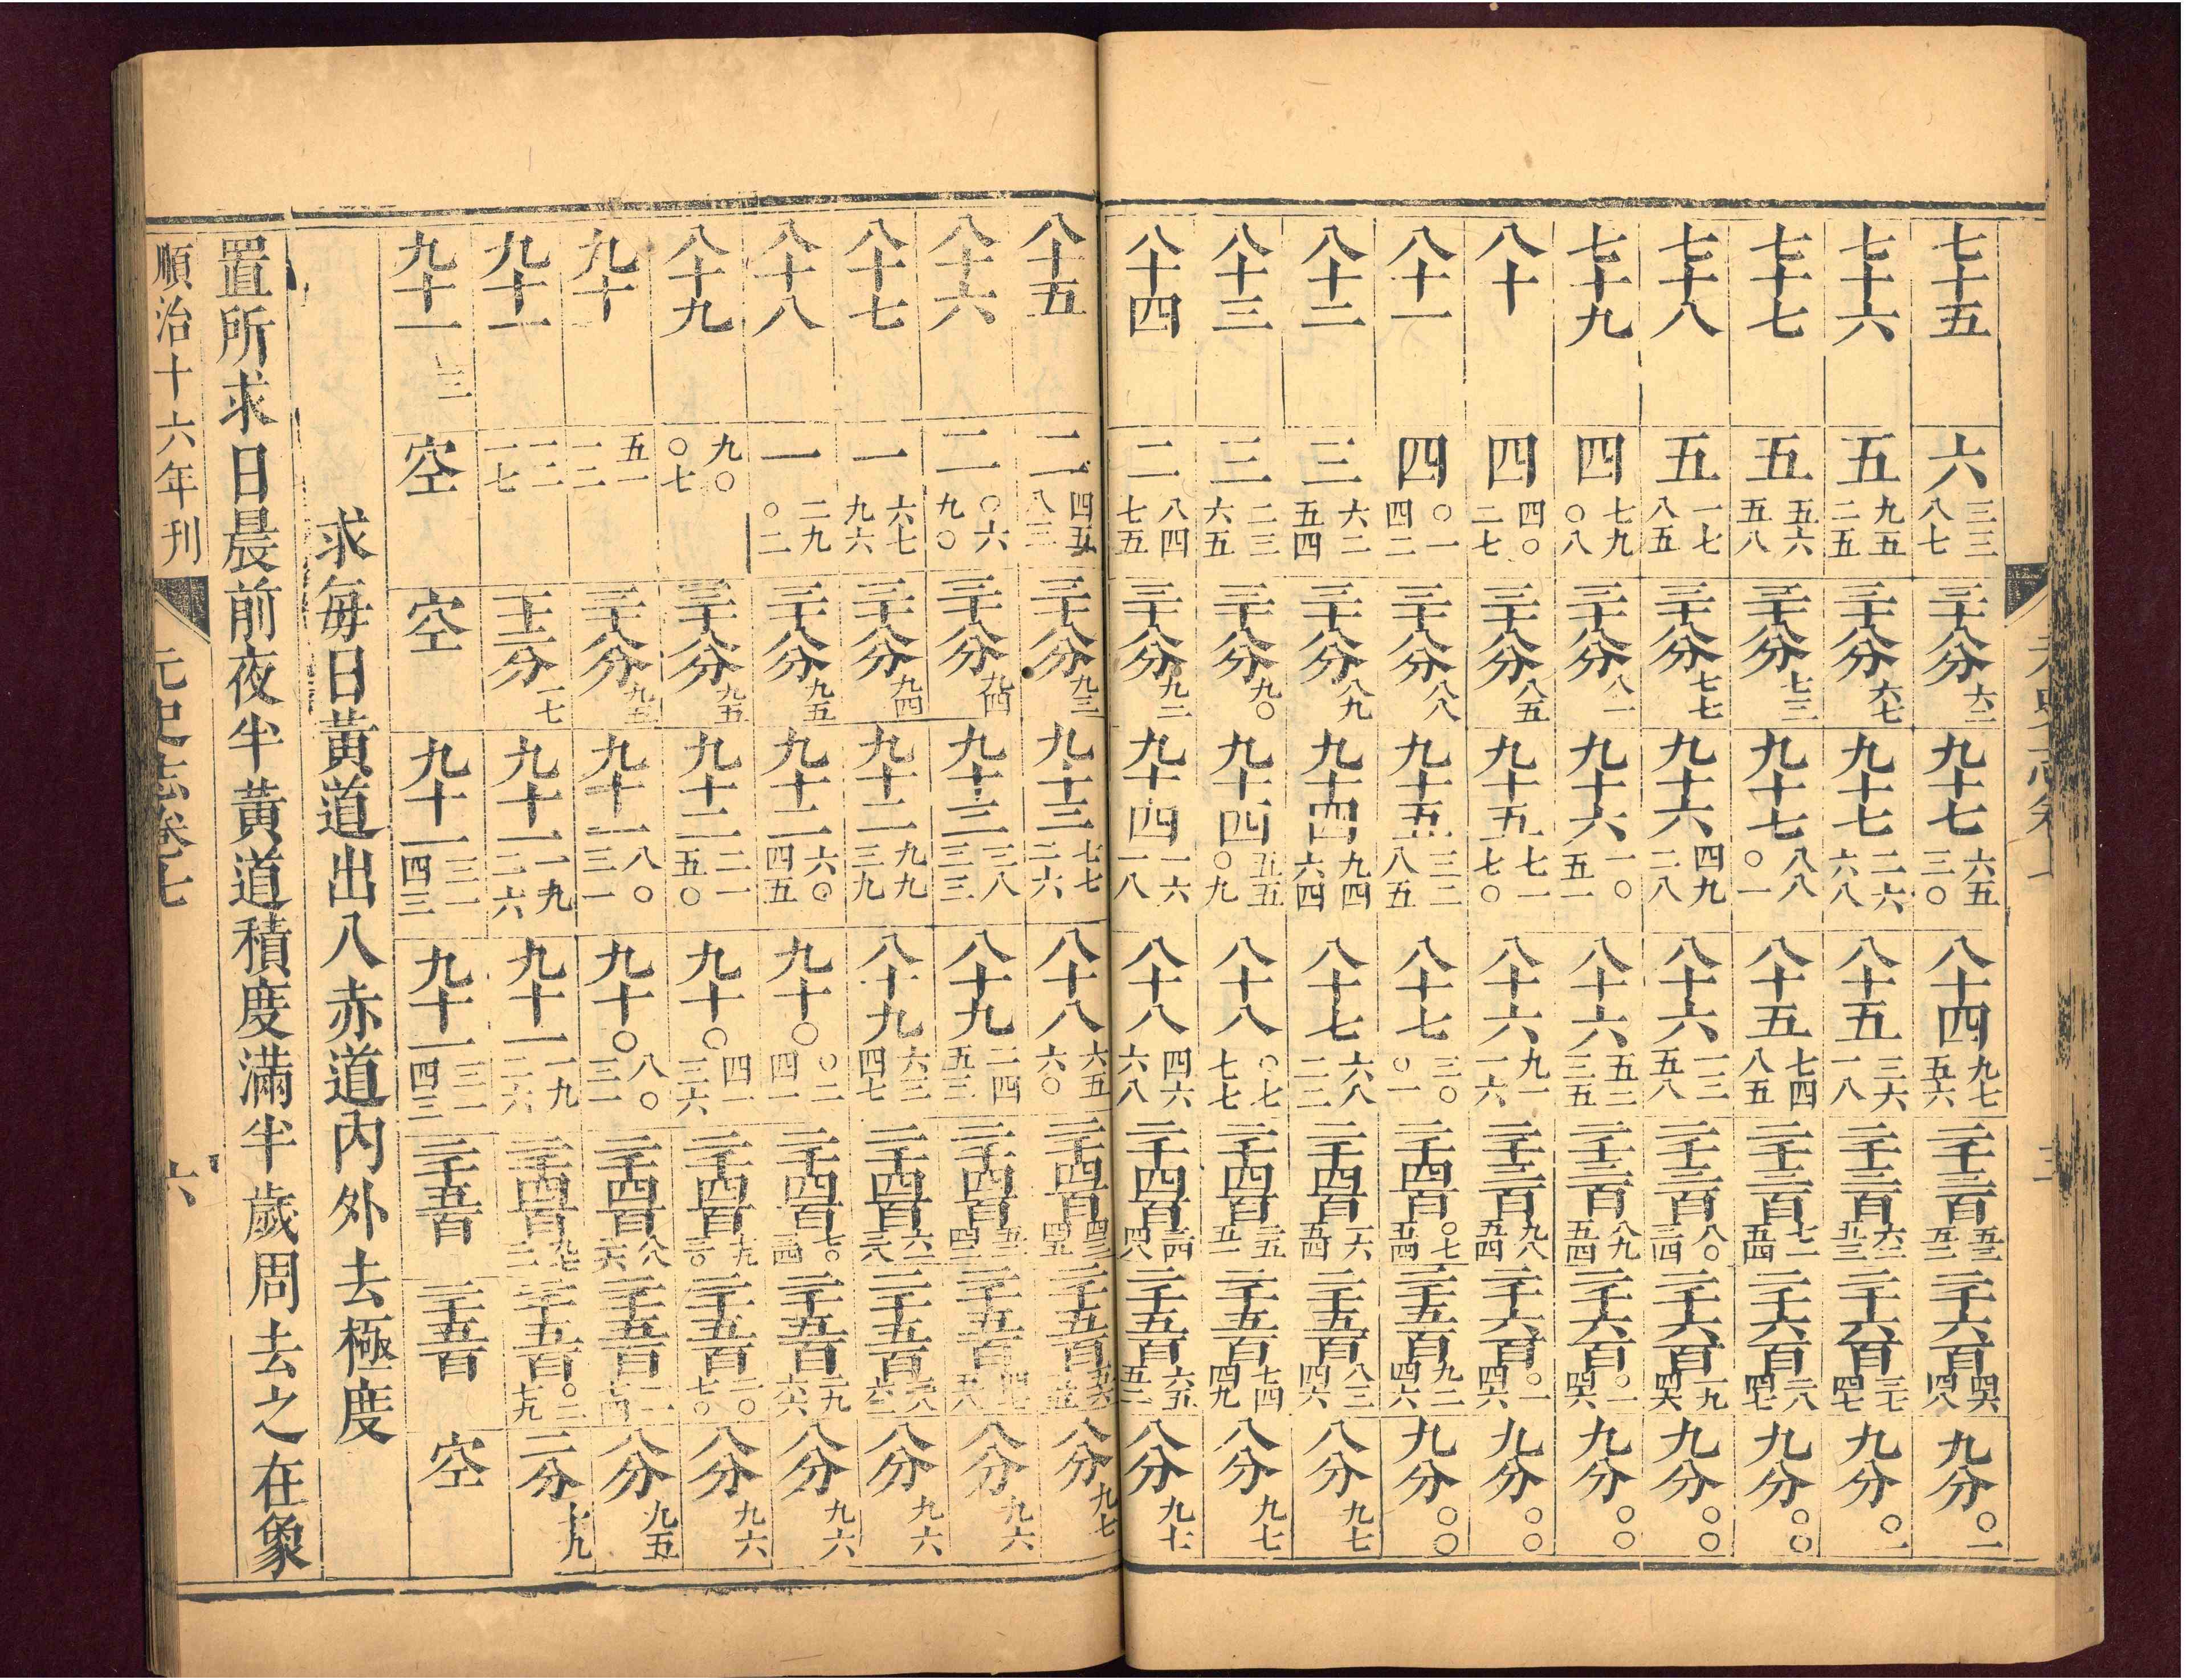 七十五 六 三三八七 三十八分 六二 九十七 六五三〇 八十四 九七五六 二千三百 五三五三 二千六百 四六四八 九分 〇一
七十六 五 九五二五 三十八分 六七 九十七 二六六八 八十五 三六一八 二千三百 六二五三 二千六百 三七四七 九分 〇一
七十七 五 五六五八 三十八分 七三 九十七 八八〇一 八十五 七四八五 二千三百 七一五四 二千六百 二八四七 九分 〇〇
七十八 五 一七八五 三十八分 七七 九十六 四九二八 八十六 一三五八 二千三百 八〇三四 二千六百 一九四六 九分 〇〇
七十九 四 七九〇八 三十八分 八一 九十六 一〇五一 八十六 五二三五 二千三百 八九五四 二千六百 〇一四六 九分 〇〇
八十 四 四〇二七 三十八分 八五 九十五 七一七〇 八十六 九一一六 二千三百 九八五四 二千六百 〇一四六 九分 〇〇
八十一 四 〇一四二 三十八分 八八 九十五 三二八五 八十七 三〇〇一 二千四百 〇七五四 二千五百 九二四六 九分 〇〇
八十二 三 六二五四 三十八分 八九 九十四 九四六四 八十七 六八二二 二千四百 一六五四 二千五百 八三四六 八分 九七
八十三 三 二三六五 三十八分 九〇 九十四 五五〇九 八十八 〇七七七 二千四百 二五五一 二千五百 七四四九 八分 九七
八十四 二 八四七五 三十八分 九二 九十四 一六一八 八十八 四六六八 二千四百 三四四八 二千五百 六五五二 八分 九七
八十五 二 四五八三 三十八分 九三 九十三 七七二六 八十八 六五六〇 二千四百 四三四五 二千五百 五六五五 八分 九七
八十六 二 〇六九〇 三十八分 九四 九十三 三八三三 八十九 二四五三 二千四百 五二四二 二千五百 四七五八 八分 九六
八十七 一 六七九六 三十八分 九四 九十二 九九三九 八十九 六三四七 二千四百 六一三八 二千五百 三八六二 八分 九六
八十八 一 二九〇二 三十八分 九五 九十二 六〇四五 九十〇 〇二四一 二千四百 七〇三四 二千五百 二九六六 八分 九六
八十九 九〇〇七 三十八分 九五 九十二 二一五〇 九十〇 四一三六 二千四百 七九三〇 二千五百 二〇七〇 八分 九六
九十 五一一二 三十八分 九五 九十一 八〇三一 九十〇 八〇三一 二千四百 八八二六 二千五百 一一七四 八分 九五
九十一 一二一七 十二分 一七 九十一 一九二六 九十一 一九二六 二千四百 九七二一 二千五百 〇二七九 二分 七九
九十一 三一 空 空 九十一 三一四三 九十一 三一四三 二千五百 二千五百 空
求每日黃道出入赤道內外去極度
置所求日晨前夜半黃道積度滿半歲周去之在象
順治十六年刊 元史志卷七 六